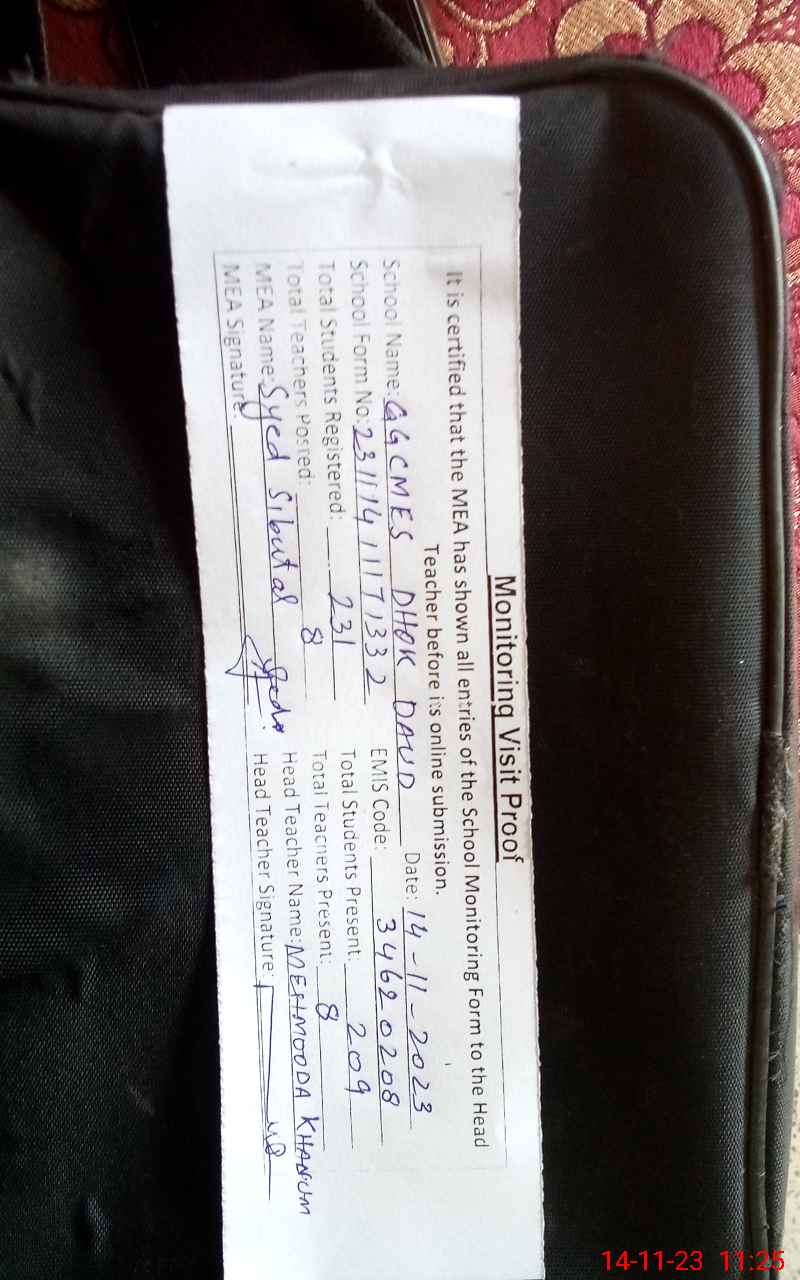 Monitoring Visit Proof
It is certified that the MEA has shown all entries of the School Monitoring Form to the Head
Teacher before its online submission.
School Name: GGCMES DHOK DAUD Date: 14-11-2023
School Form No: 23111411171332 EMIS Code: 34620208
Total Students Registered: 231 Total Students Present: 209
Total Teachers Posted: 8 Total Teachers Present: 8
MEA Name: Syed Sibutal Head Teacher Name: MEHMOODA KHANUM
MEA Signature: Head Teacher Signature:
14-11-23 11:25